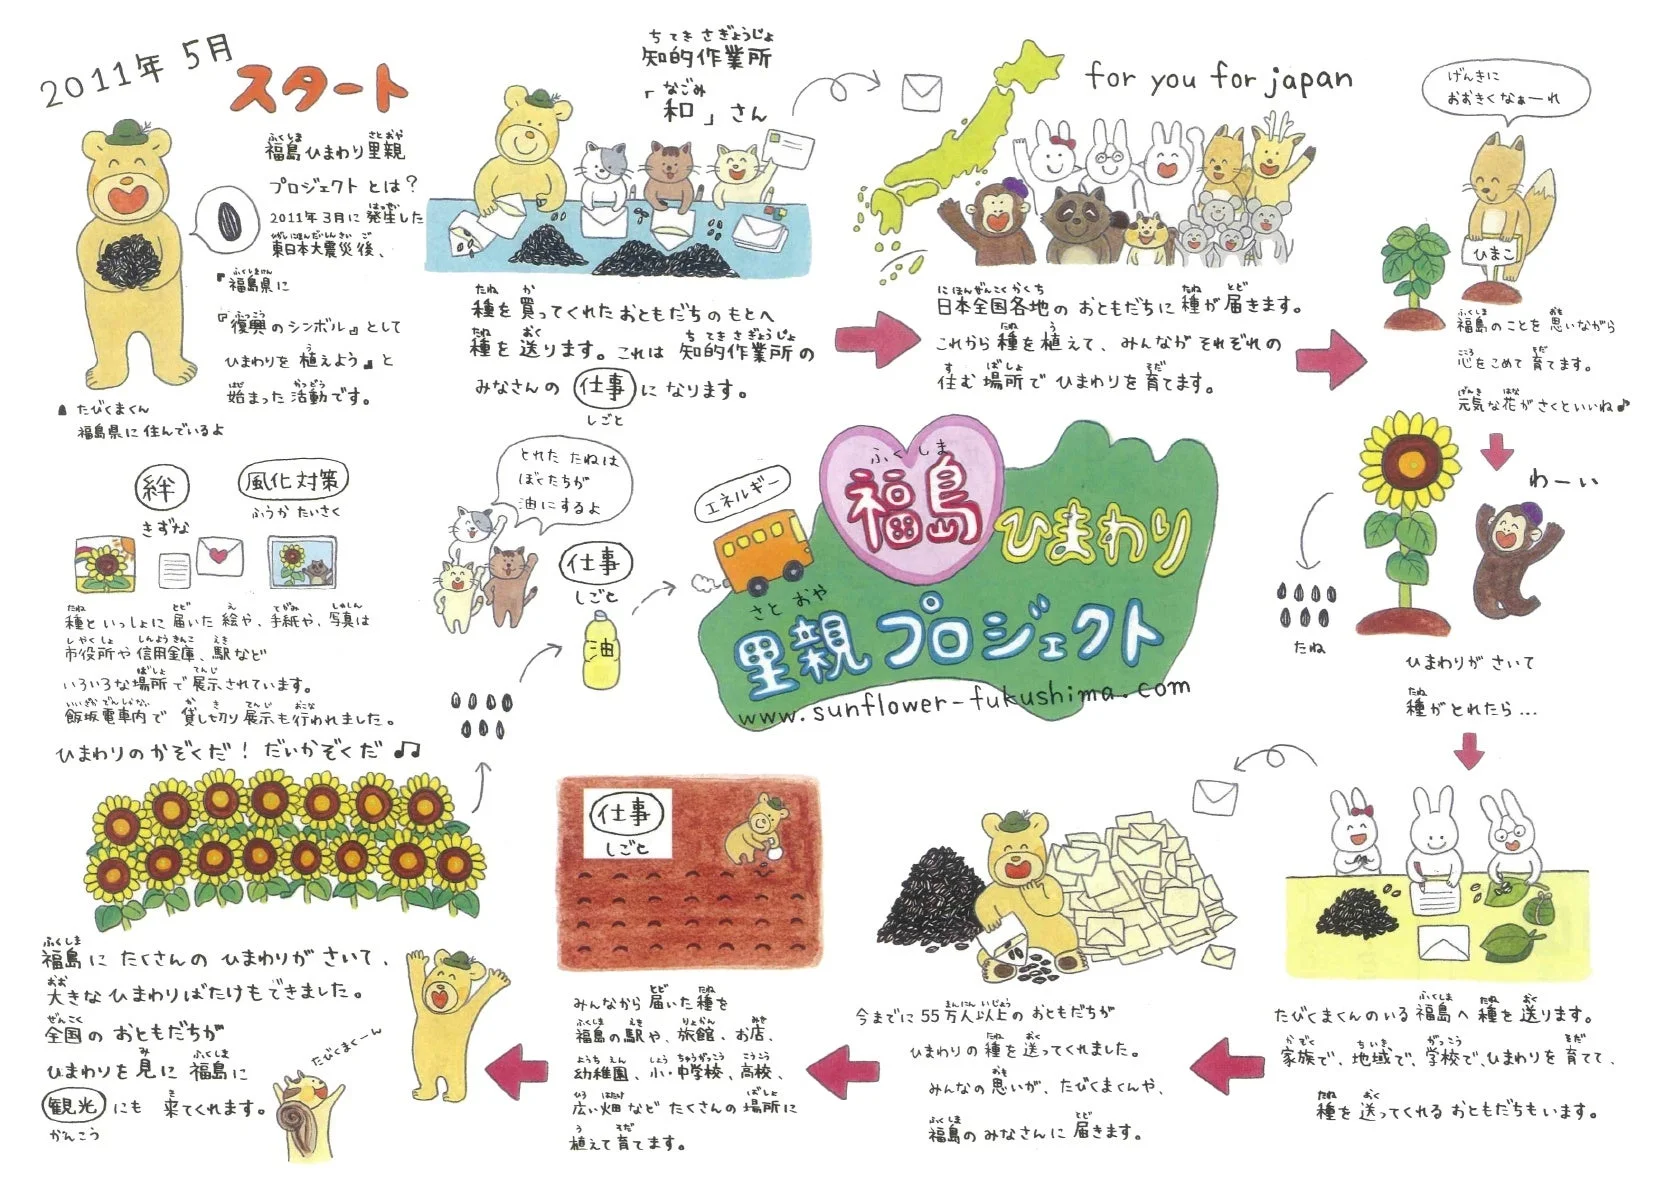 2011年 5月
スタート
福島ひまわり里親
プロジェクト とは?
2011年3月に発生した
東日本大震災後、
『福島県に
『復興のシンボル』として
ひまわりを植えよう』と
始まった活動です。
たびくまくん
福島県に住んでいるよ
知的作業所
「和」さん
種を買ってくれたおともだちのもとへ
種を送ります。これは 知的作業所の
みなさんの 仕事 になります。
しごと
for you for japan
日本全国各地の おともだちに 種が届きます。
これから種を植えて、みんながそれぞれの
住む場所で ひまわりを育てます。
げんきに
おおきくなぁーれ
ひまこ
福島のことを思いながら
心をこめて育てます。
元気な花がさくといいね♪
わーい
たね
ひまわりがさいて
種がとれたら...
たびくまくんのいる福島へ種を送ります。
家族で、地域で、学校で、ひまわりを育てて、
種を送ってくれるおともだちもいます。
今までに55万人以上のおともだちが
ひまわりの種を送ってくれました。
みんなの思いが、たびくまくんや、
福島のみなさんに届きます。
仕事
しごと
みんなから届いた種を
福島の駅や、旅館、お店、
幼稚園、小・中学校、高校、
広い畑など たくさんの場所に
植えて育てます。
ひまわりのかぞくだ! だいかぞくだ♫
福島に たくさんの ひまわりが さいて、
大きなひまわりばたけもできました。
全国の おともだちが
ひまわりを見に 福島に
観光 にも 来てくれます。
かんこう
たびくまくーん
とれた たねは
ぼくたちが
油にするよ
仕事
しごと
油
エネルギー
絆
きずな
風化対策
ふうか たいさく
種といっしょに届いた絵や、手紙や、写真は
市役所や信用金庫、駅など
いろいろな場所で展示されています。
飯坂電車内で 貸し切り展示も行われました。
ふくしま
福島ひまわり
さと おや
里親プロジェクト
www.sunflower-fukushima.com